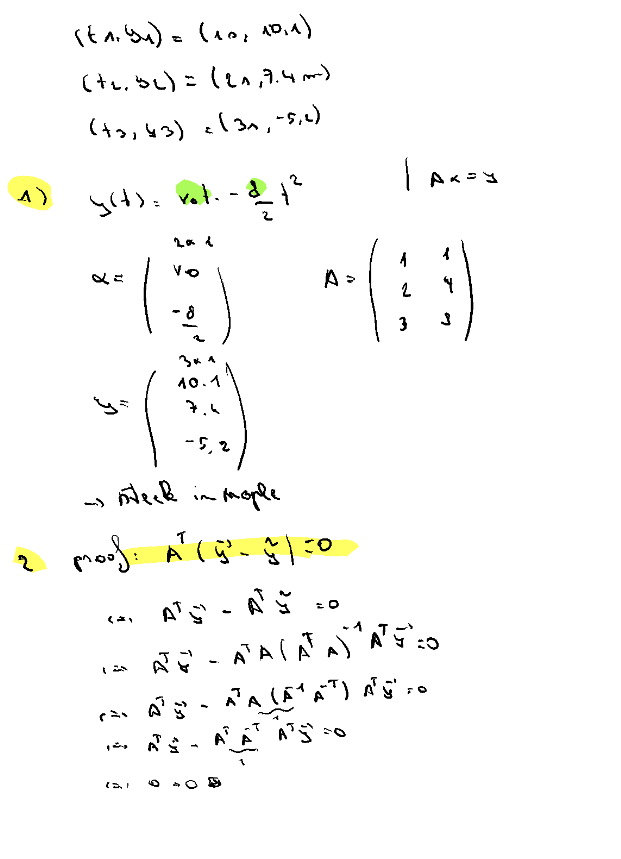 (t1, y1) = (1s, 10,1)
(t2, y2) = (2s, 7.4 m)
(t3, y3) = (3s, -5,2)
1) y(t) = v0t. - g/2 t² | Aα = y
2x1
α = ( v0 -g/2 ) A = ( 1 1 2 4 3 9 )
3x1
y = ( 10.1 7.4 -5,2 )
→ in maple
2 proof: Aᵀ(y⃗ - ỹ) = 0
(=) Aᵀy⃗ - Aᵀỹ = 0
(=) Aᵀy⃗ - AᵀA(AᵀA)⁻¹Aᵀy⃗ = 0
(=) Aᵀy⃗ - AᵀA(A⁻¹A⁻ᵀ)Aᵀy⃗ = 0
(=) Aᵀy⃗ - AᵀA⁻ᵀAᵀy⃗ = 0
(=) 0 = 0